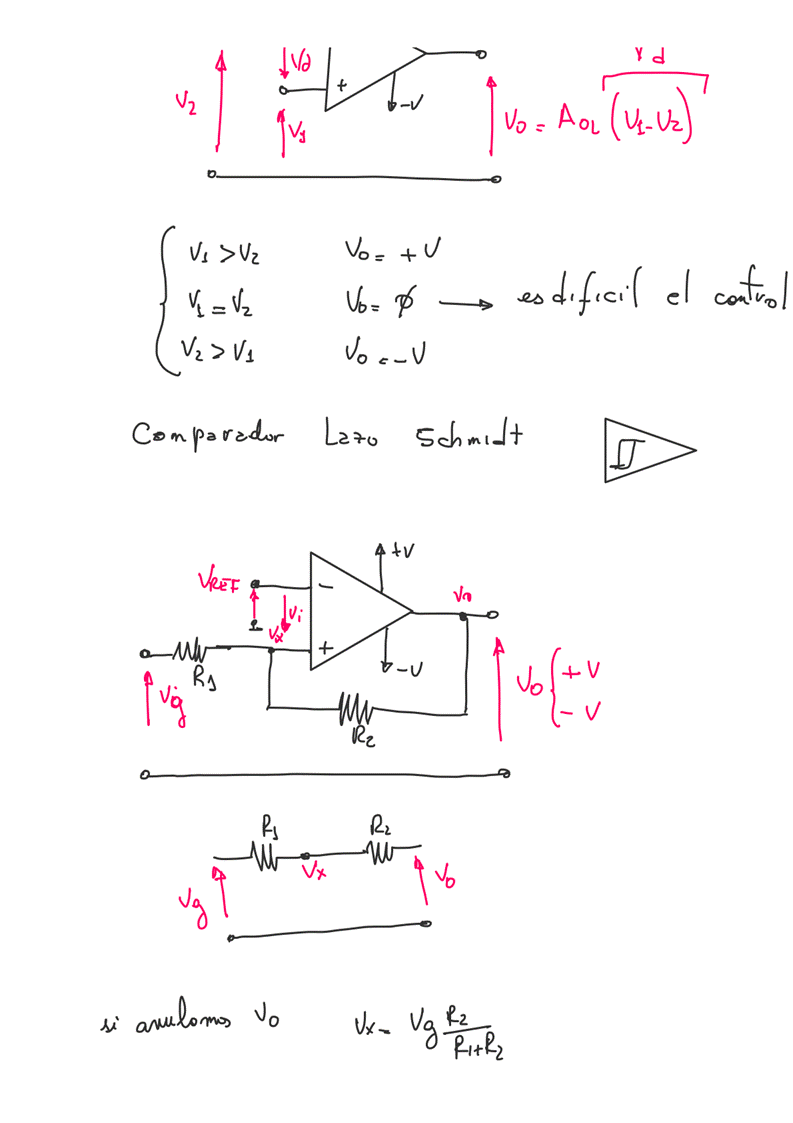 Vd
Vd
V2
+
-V
V1
Vo = AOL (V1-V2)
V1 > V2 Vo = + V
V1 = V2 Vo = ϕ → es dificil el control
V2 > V1 Vo = - V
Comparador Lazo Schmidt
+V
VREF
-
Vi
Vx
+
-V
R1
Vg
R2
Vo { + V
- V
R1 R2
Vx
Vg Vo
si anulamos Vo Vx = Vg R2/R1+R2